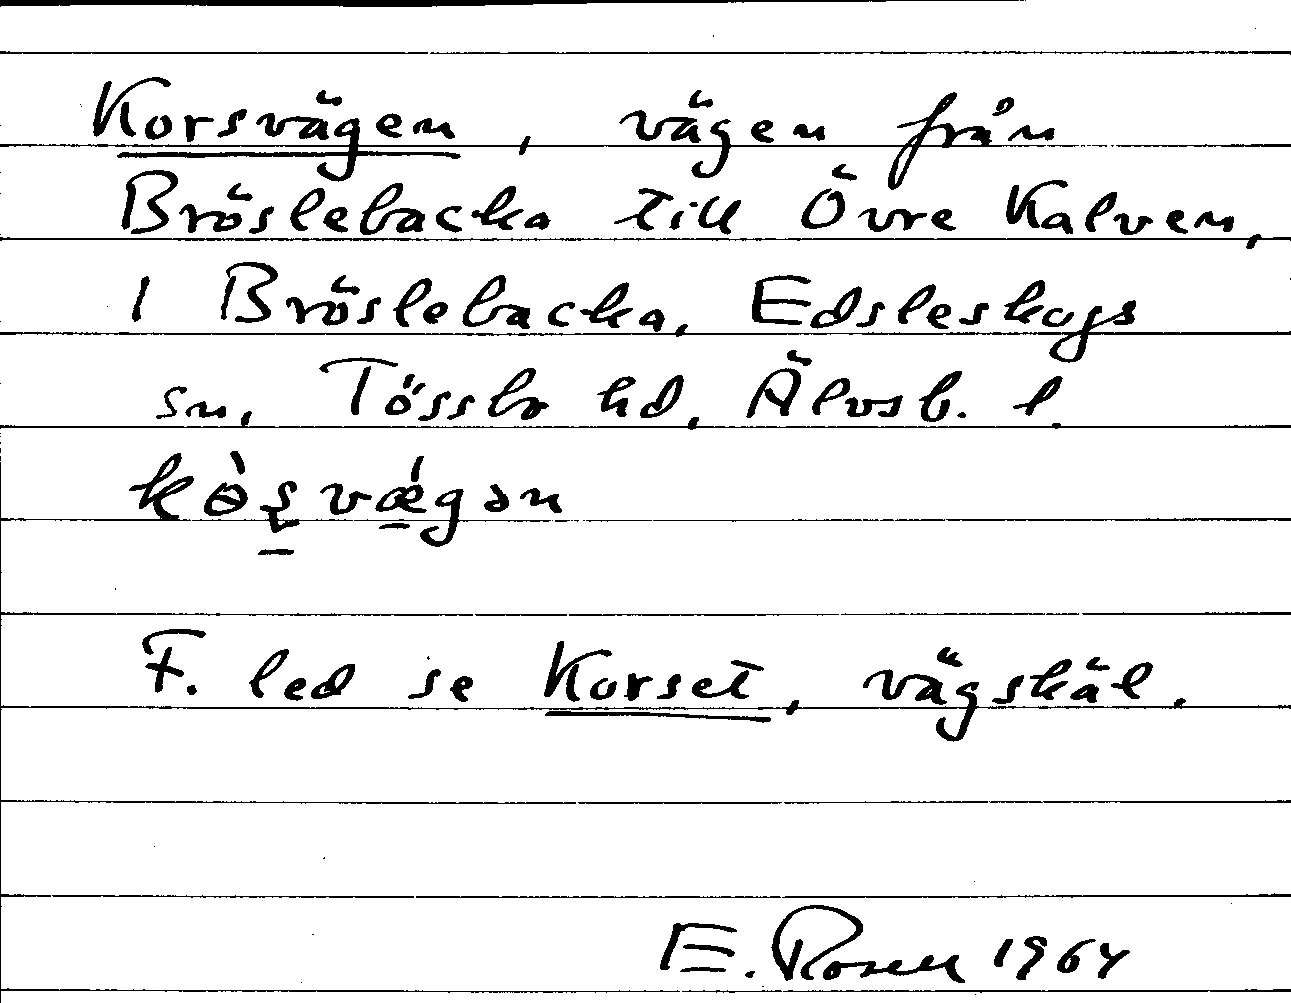 Korsvägen, vägen från
Bröslebacka till Övre Kalven,
I Bröslebacka, Edsleskogs
sn, Tössbo hd, Älvsb. l.
kɵ̀ʂvǽgən
F. led se Korset, vägskäl.
E. Rosell 1964